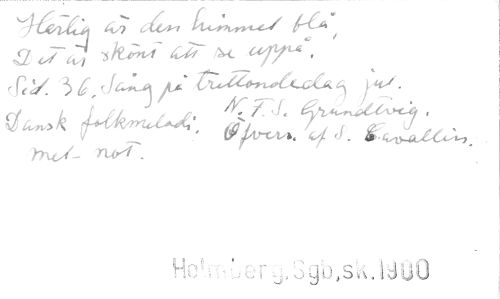 Härlig är den himmel blå,
Det är skönt att se uppå.
Sid. 36. Sång på trettondedag jul.
Dansk folkmelodi. N. F. S. Grundtvig.
mel. not. Öfvers. af S. Cavallin.
Holmberg,Sgb,sk.1900